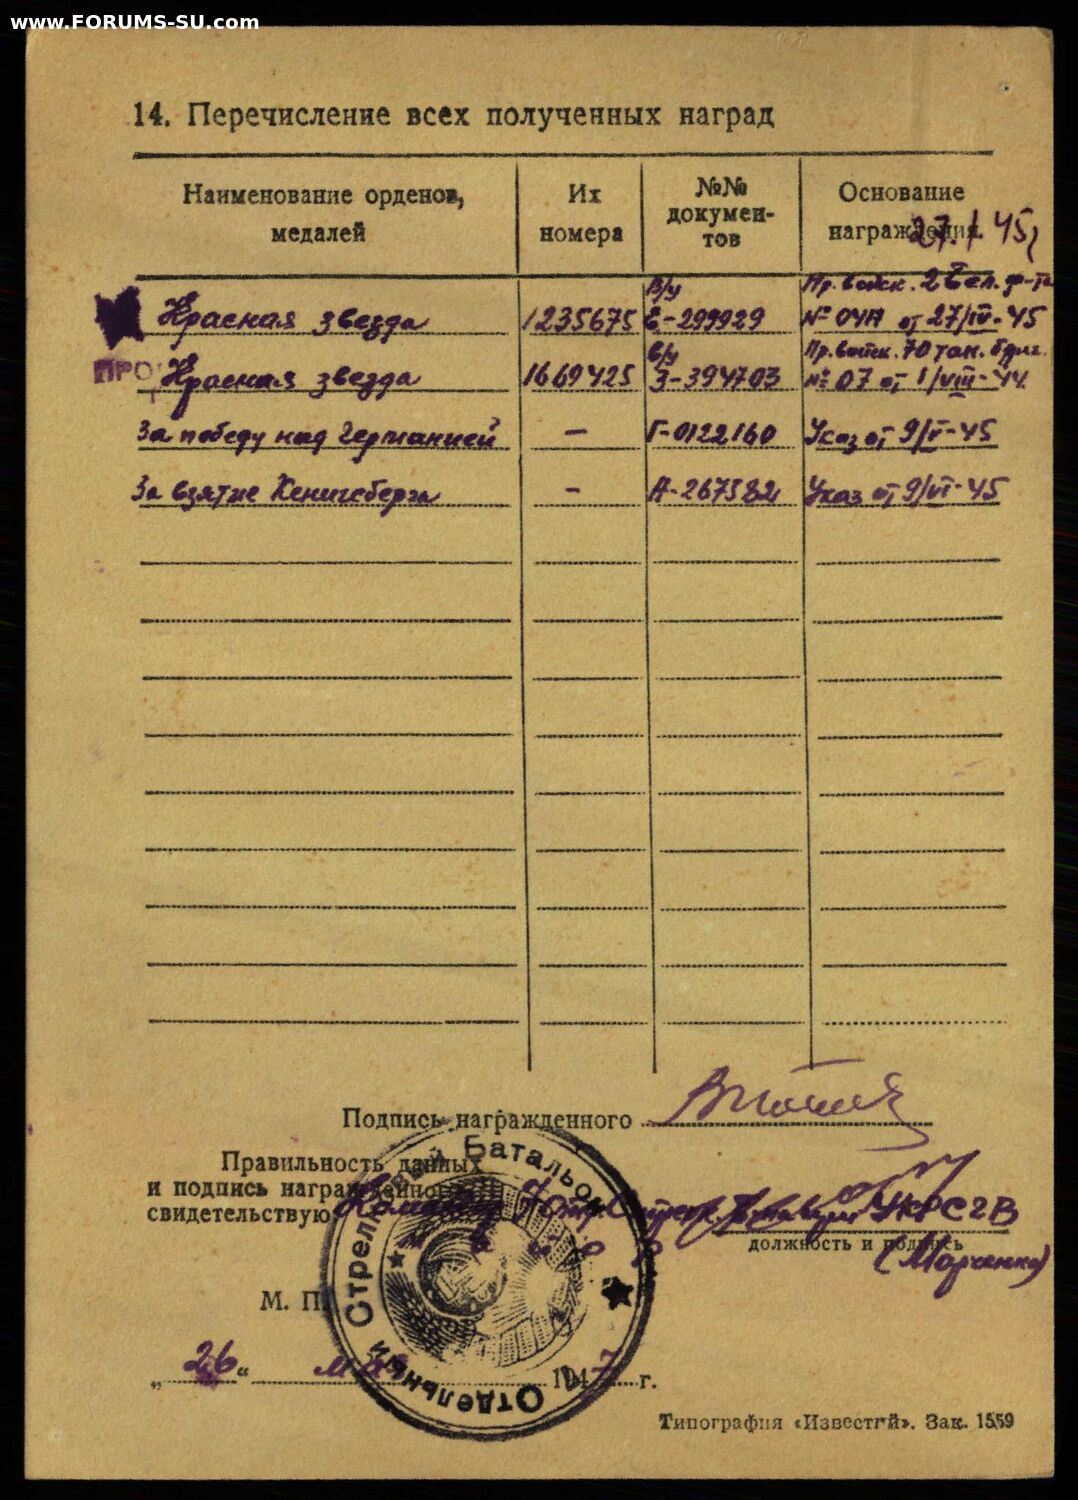 www.FORUMS-SU.com
14. Перечисление всех полученных наград
Наименование орденов, медалей
Их номера
№№ документов
Основание награждения
27. 45
Красная звезда 1235675 В/у Е-299929 Пр. войск. 2 Бел. ф-та № 04А от 27/IV-45
ПРО Красная звезда 1669425 в/у З-394703 Пр. войск. 70 тан. бриг. № 07 от 1/VIII-44
За победу над Германией — Г-0122160 Указ от 9/V-45
За взятие Кенигсберга — А-267582 Указ от 9/VI-45
Подпись награжденного
Правильность данных
и подпись награжденного
свидетельствую
УКРСГВ
должность и подпись
(Марченко)
М. П.
Отдельный Стрелковый Батальон
„26“ мая 1947 г.
Типография «Известий». Зак. 1559